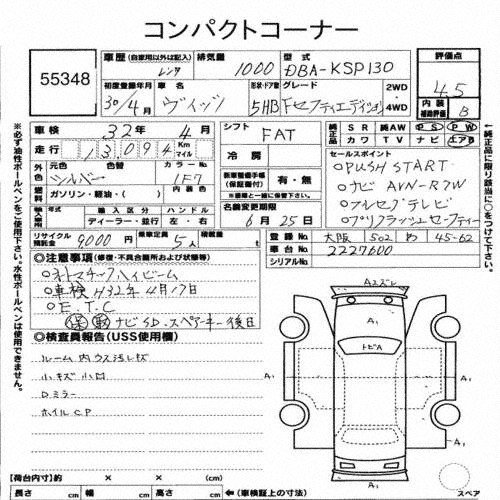 コンパクトコーナー
55348
車歴 (自家用以外は記入) レンタ
排気量 1000
型式 DBA-KSP130
評価点 4.5
内装補助評価 B
初度登録年月 30/4月
車名 ヴィッツ
形状・ドア数 5HB
グレード Fセーフティエディション
2WD
4WD
車検 32年 4月
シフト FAT
純正品 SR 純AW PS PW
カワ TV ナビ エアB
走行 13,094 Km マイル
冷房
セールスポイント
○PUSH START
○ナビ AVN-R7W
○フルセグテレビ
○プリクラッシュセーフティー
外元色 シルバー
色替
カラーNo. 1F7
内色
燃料 ガソリン・軽油・( )
新車整備手帳(保証書付) 有・無
輸入車 年式
輸入区分 ディーラー・並行
ハンドル 左・右
名義変更期限 6月25日
リサイクル預託金 9000円
乗車定員 5人
積載量 t
登録No. 大阪 502 め 45-62
車台No. 2227600
シリアルNo.
◎注意事項 (修復・不具合箇所および状態等)
○オートマチックハイビーム
○車検 H32年4月17日
○E.T.C
保 取 ナビSD、スペアーキー 後日
◎検査員報告(USS使用欄)
ルーム内ウス汚レキズ
小キズ小凹
Dミラー
ホイルCP
A2ズレ
A1
A1
トビA
A1
A1
A1
スペア
【荷台内寸】約 × ×
長さ cm 幅 cm 高さ cm ←(車検証上の寸法)
※必ず油性ボールペンをご使用下さい。水性ボールペンは使用できません。
←純正品に限り該当に○をつけて下さい。